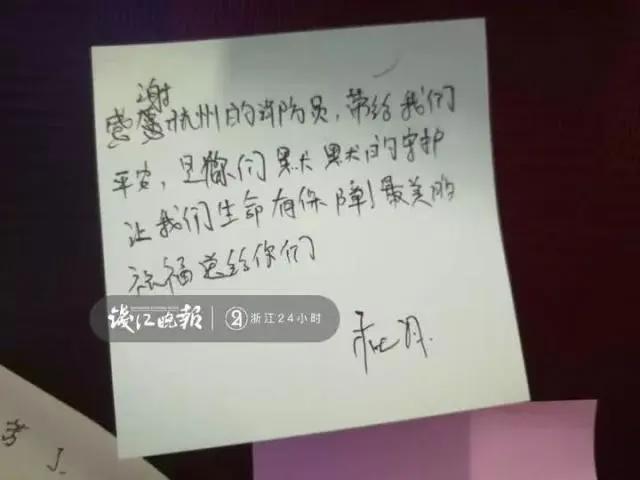 感谢杭州的消防员,带给我们
平安,是你们默默的守护
让我们生命有保障!最美的
祝福送给你们
钱江晚报
浙江24小时